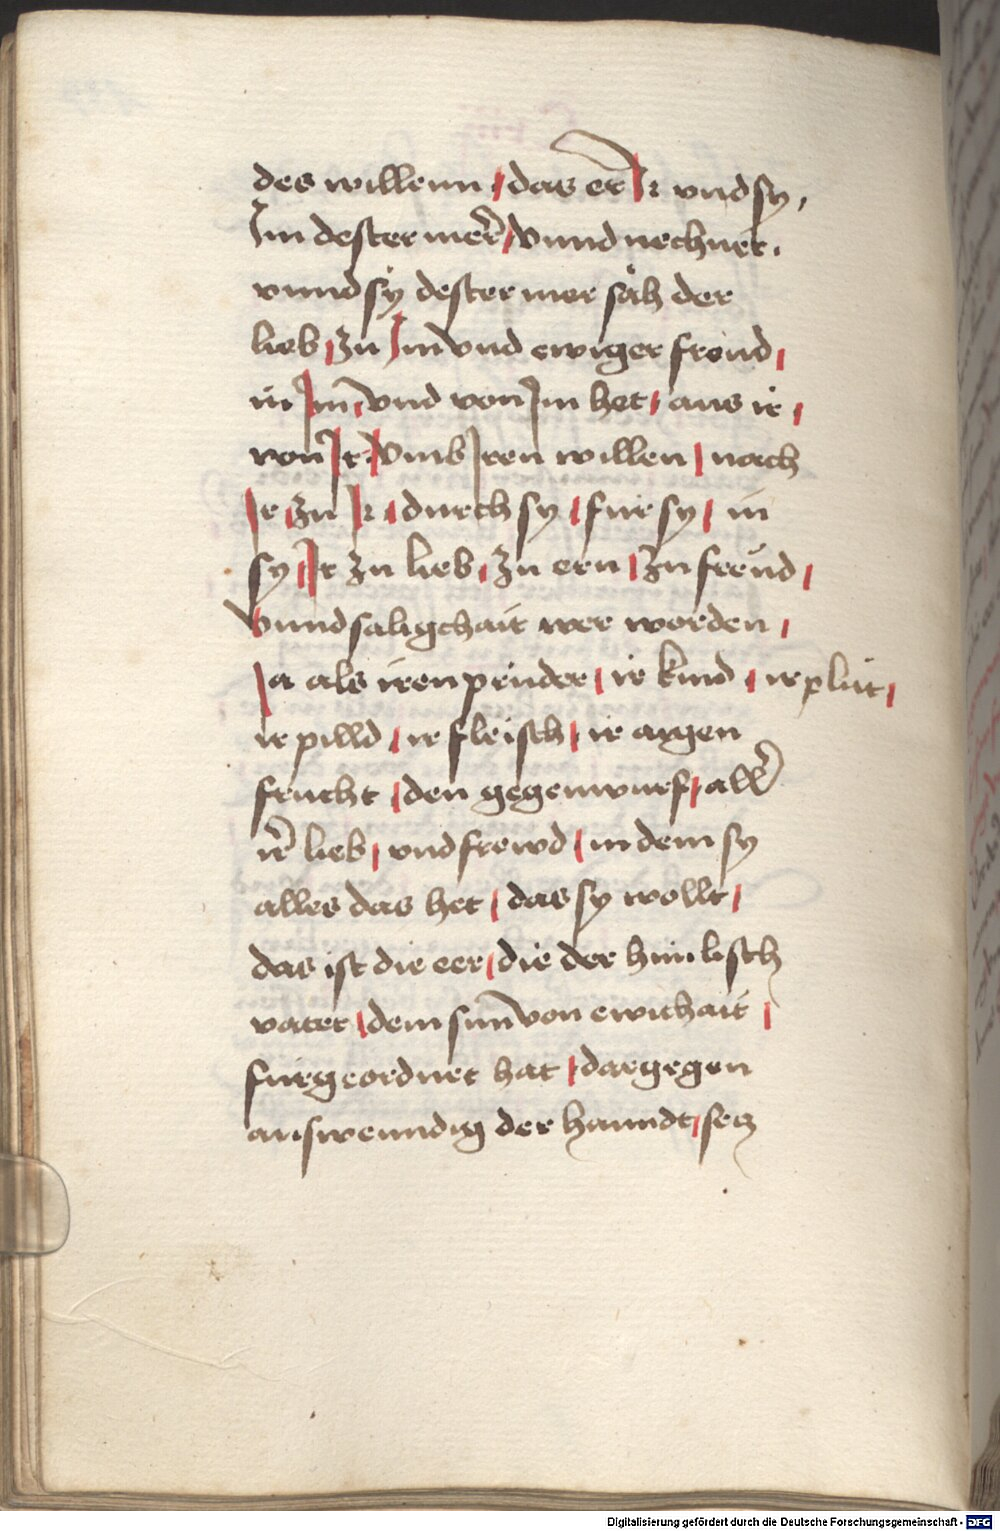 des willenn / das er Ir vnd sy,
Im dester merˀ / Vnnd nechner.
vnnd sÿ dester mer säh der
lieb / zu Im Vnd ewiger freud /
in Im / Vnd von Im het / aus ir /
von Ir / Vmb Iren willen / nach
Ir / zu Ir / durch sy / fur sy / in
sy / Ir zu lieb / zu ern / zu freud /
Vnnd saligchait wer worden /
Ja als iren pruder / ir kind / ir plut /
ir pilld / ir fleisch / ir aigen
frucht / den gegenwurf / allˀ
irˀ lieb / vnd frewd / in dem sy
alles das het / das sy wollt /
das ist die eer / die der himlisch
vater / dem sun Von ewichait /
furgeordnet hat / dargegen
auswenndig der hanndt / secz
Digitalisierung gefördert durch die Deutsche Forschungsgemeinschaft - DFG